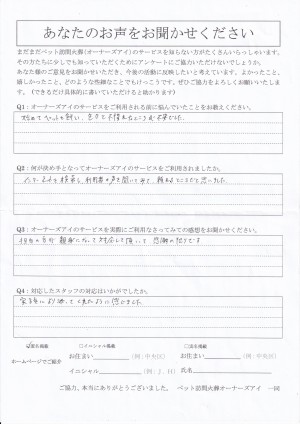 あなたのお声をお聞かせください
まだまだペット訪問火葬(オーナーズアイ)のサービスを知らない方がたくさんいらっしゃいます。
その方たちに少しでも知っていただくためにアンケートにご協力いただけないでしょうか。
あなた様のご意見をお聞かせいただき、今後の活動に反映したいと考えています。よかったこと、
嬉しかったこと、どのような些細なことでもけっこうです。ぜひご協力をよろしくお願いいたします。
(できるだけ具体的に書いていただけると助かります)
Q1:オーナーズアイのサービスをご利用される前に悩んでいたことをお教えください。
初めてペットを飼い、
Q2:何が決め手となってオーナーズアイのサービスをご利用されましたか。
インターネットで検索し、利用者の声を聞いてみて、頼れるところだと思いました
Q3:オーナーズアイのサービスを実際にご利用なさってみての感想をお聞かせください。
担当の方が親身になって対応して頂いて 感謝の限りです
Q4:対応したスタッフの対応はいかがでしたか。
匿名掲載
イニシャル掲載
実名掲載
ホームページでご紹介
お住まい
(例:中央区)
お住まい
(例:中央区)
イニシャル
(例:J,H)
氏名
ご協力、本当にありがとうございました。 ペット訪問火葬オーナーズアイ 一同